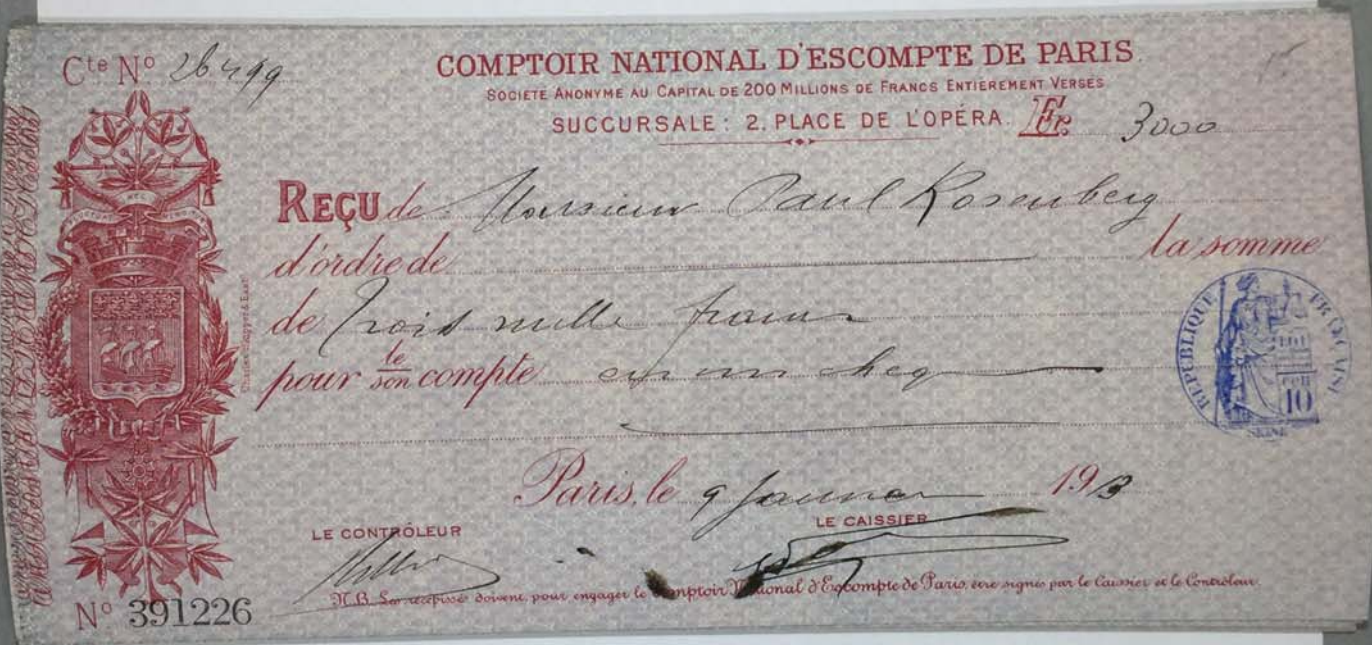 Cte No 26499
COMPTOIR NATIONAL D'ESCOMPTE DE PARIS.
SOCIETE ANONYME AU CAPITAL DE 200 MILLIONS DE FRANCS ENTIEREMENT VERSES
SUCCURSALE: 2. PLACE DE L'OPÉRA. Fr. 3000
REÇU de Monsieur Paul Rosenberg
d'ordre de la somme
de Trois mille francs
pour le son compte en un cheq
RÉPUBLIQUE FRANÇAISE
10
SEINE
Paris, le 9 Janvier 1913
LE CONTRÔLEUR LE CAISSIER
N.B. Les récépissés doivent, pour engager le Comptoir National d'Escompte de Paris, être signés par le Caissier et le Contrôleur.
No 391226